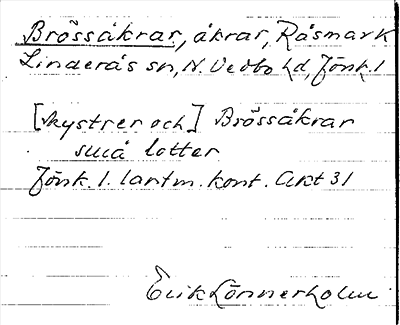 Brössåkrar, åkrar, Råsmark
Linderås sn, N. Vedbo hd, Jönk. l
[Mystrer och] Brössåkrar
små lotter
Jönk. l. lantm. kont. Akt 31
Erik Lönnerholm